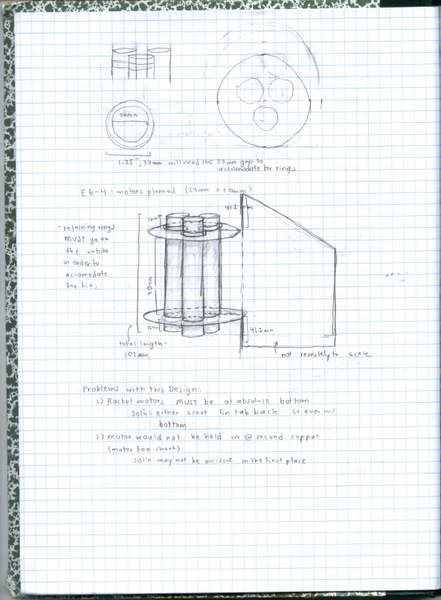 24mm
1.25", 32mm. will need the 32mm gap to
accomodate for rings
E6-4: motors planned (24mm x 70mm)
41.2
- retaining rings
must go on
the outside
in order to
accomodate
for fins
70mm
total length:
101mm
41.2mm
not remotely to scale
Problems with this Design:
1) Rocket motors must be at absolute bottom
sol'n: either scoot fin tab back so even w/
bottom
2) Motor would not be held in @ second support
(motor too short)
sol'n: may not be an issue in the first place